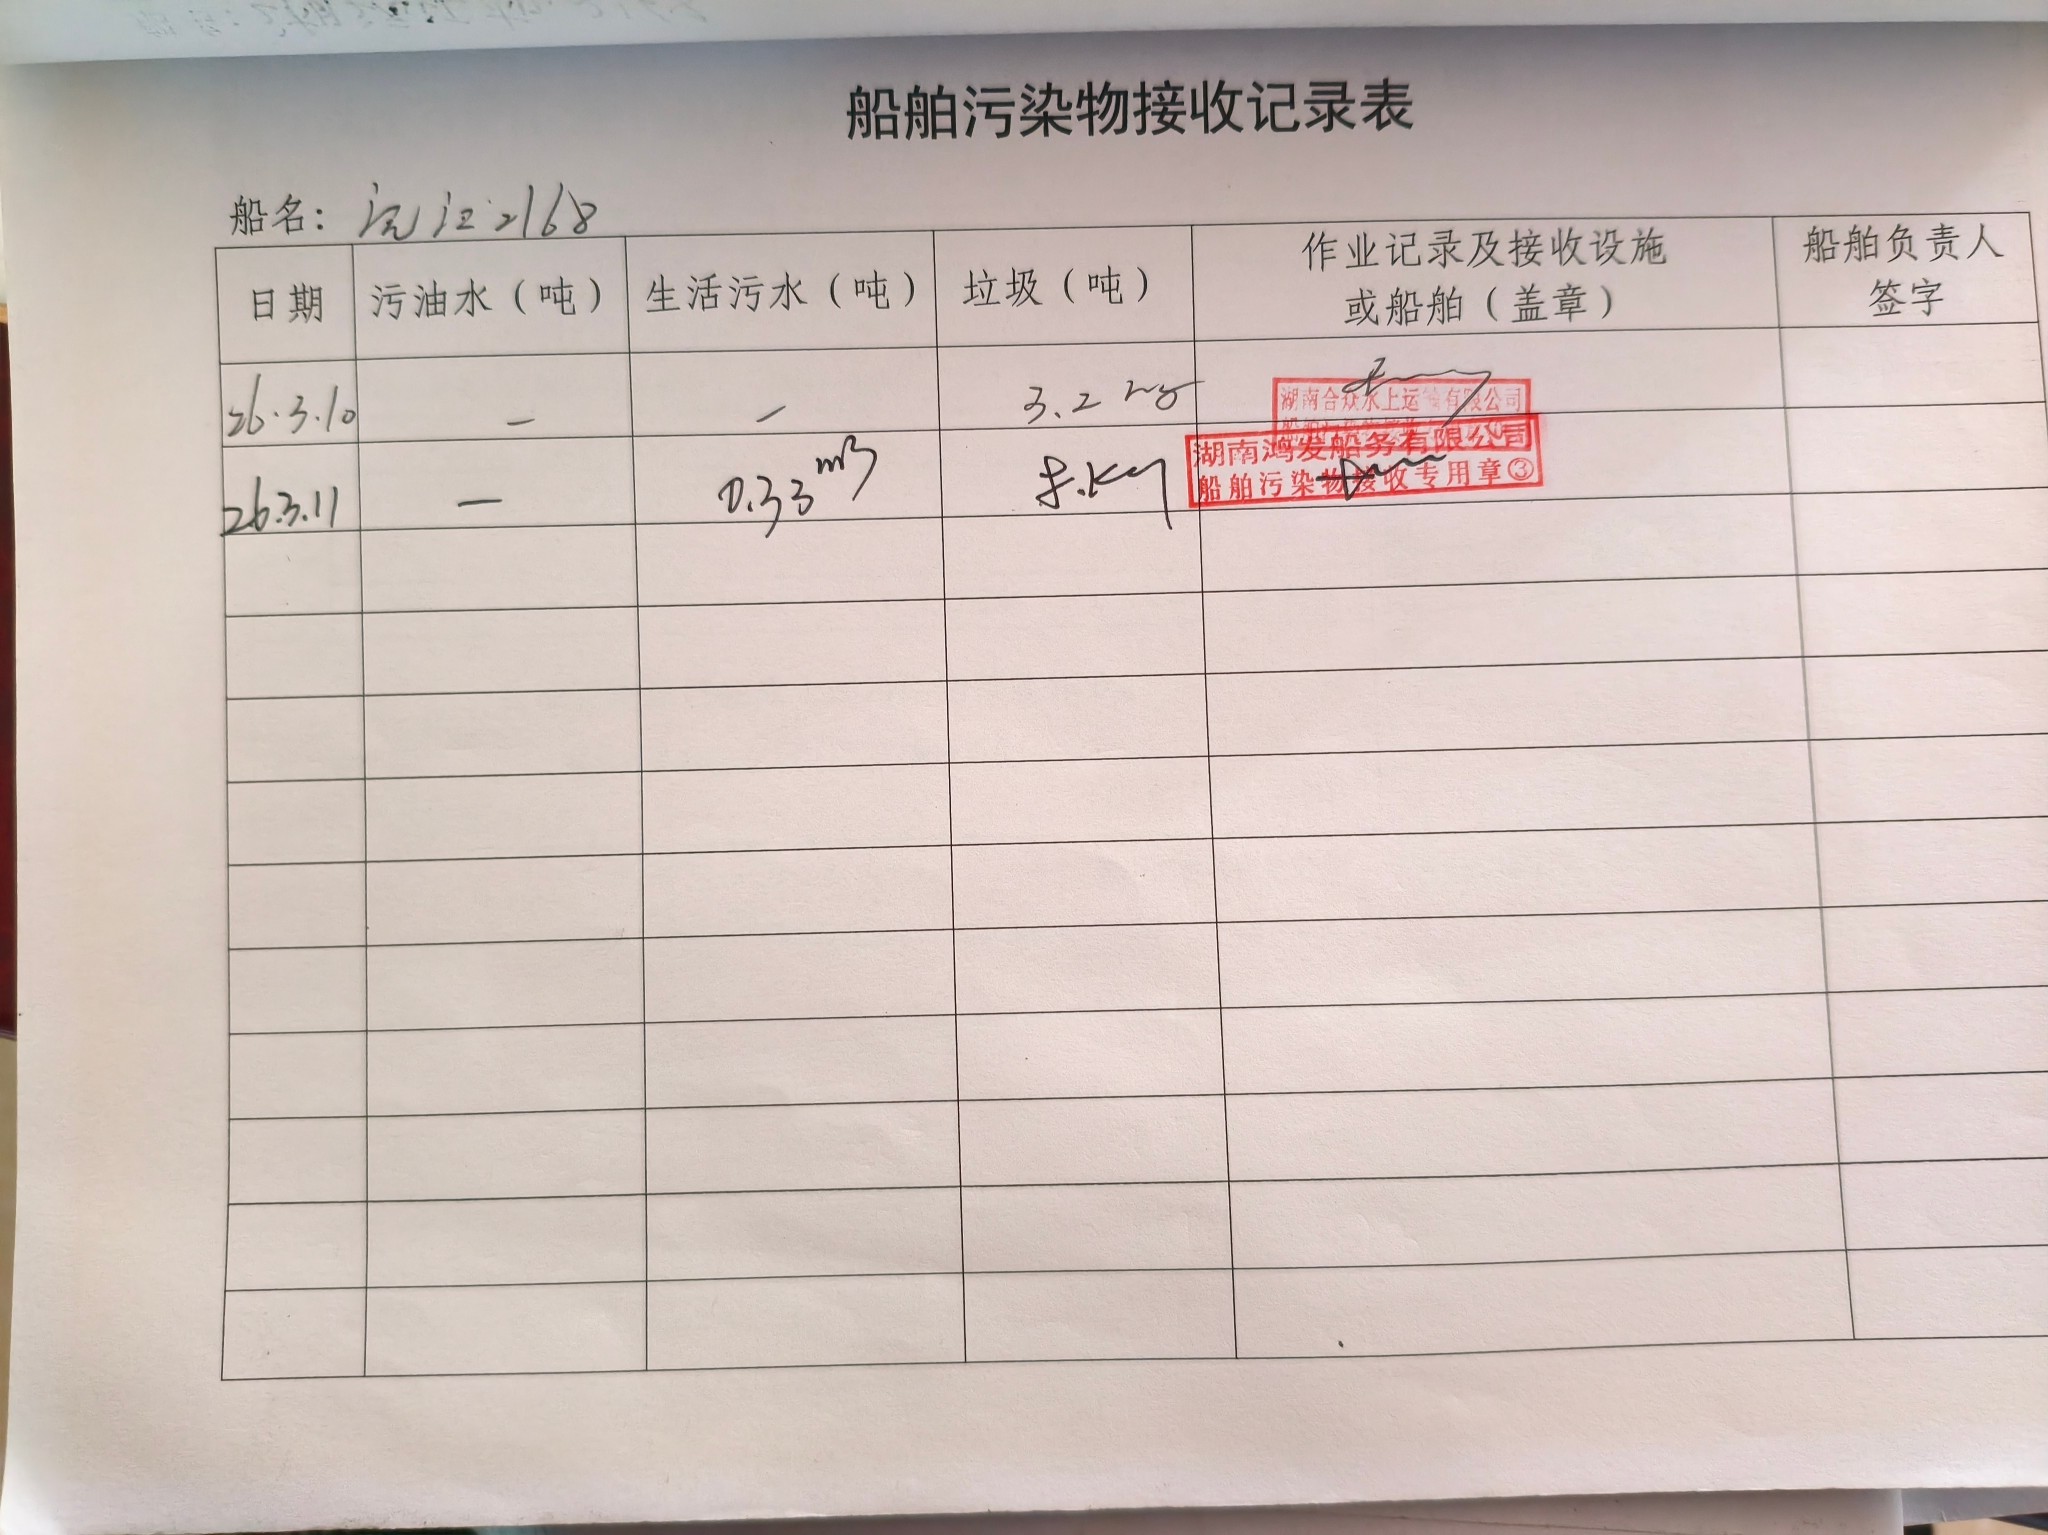 船舶污染物接收记录表
船名: 沅江2168
日期 污油水（吨） 生活污水（吨） 垃圾（吨） 作业记录及接收设施或船舶（盖章） 船舶负责人签字
26.3.10 — — 3.2 kg
湖南合众水上运输有限公司
26.3.11 — 0.33 m3 kg
湖南鸿发船务有限公司
船舶污染物接收专用章③